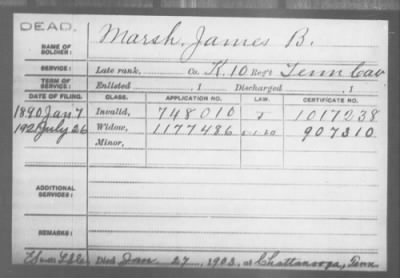 DEAD.
NAME OF SOLDIER: Marsh, James B.
SERVICE: Late rank, Co. K. 10 Reg't Tenn Cav
TERM OF SERVICE: Enlisted , 1 Discharged , 1
DATE OF FILING. CLASS. APPLICATION NO. LAW. CERTIFICATE NO.
1890 Jan 7 Invalid, 748010 1017238
192 July 26 Widow, 1177486 907310
Minor,
ADDITIONAL SERVICES:
REMARKS:
Died Jan 27, 1922, at Chattanooga, Tenn